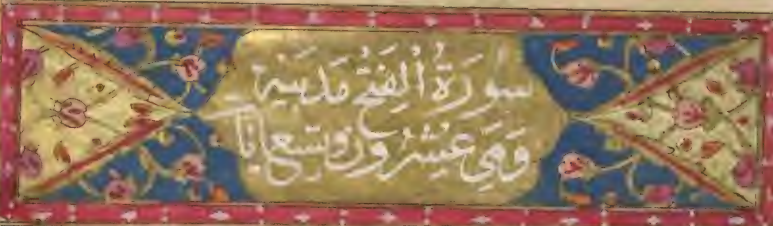 سُورَةُ الْفَتْحِ مَدَنِيَّة
وَهِيَ عِشْرُونَ وَتِسْعُ اٰيَات